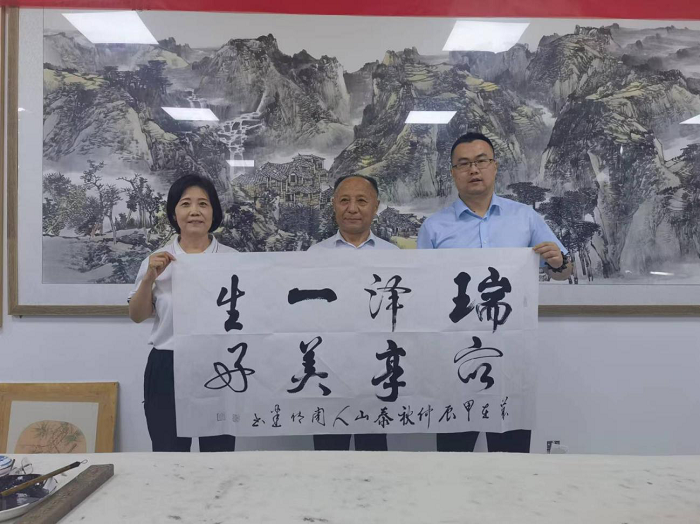 瑞泽一生
众享美好
岁在甲辰仲秋泰山人书